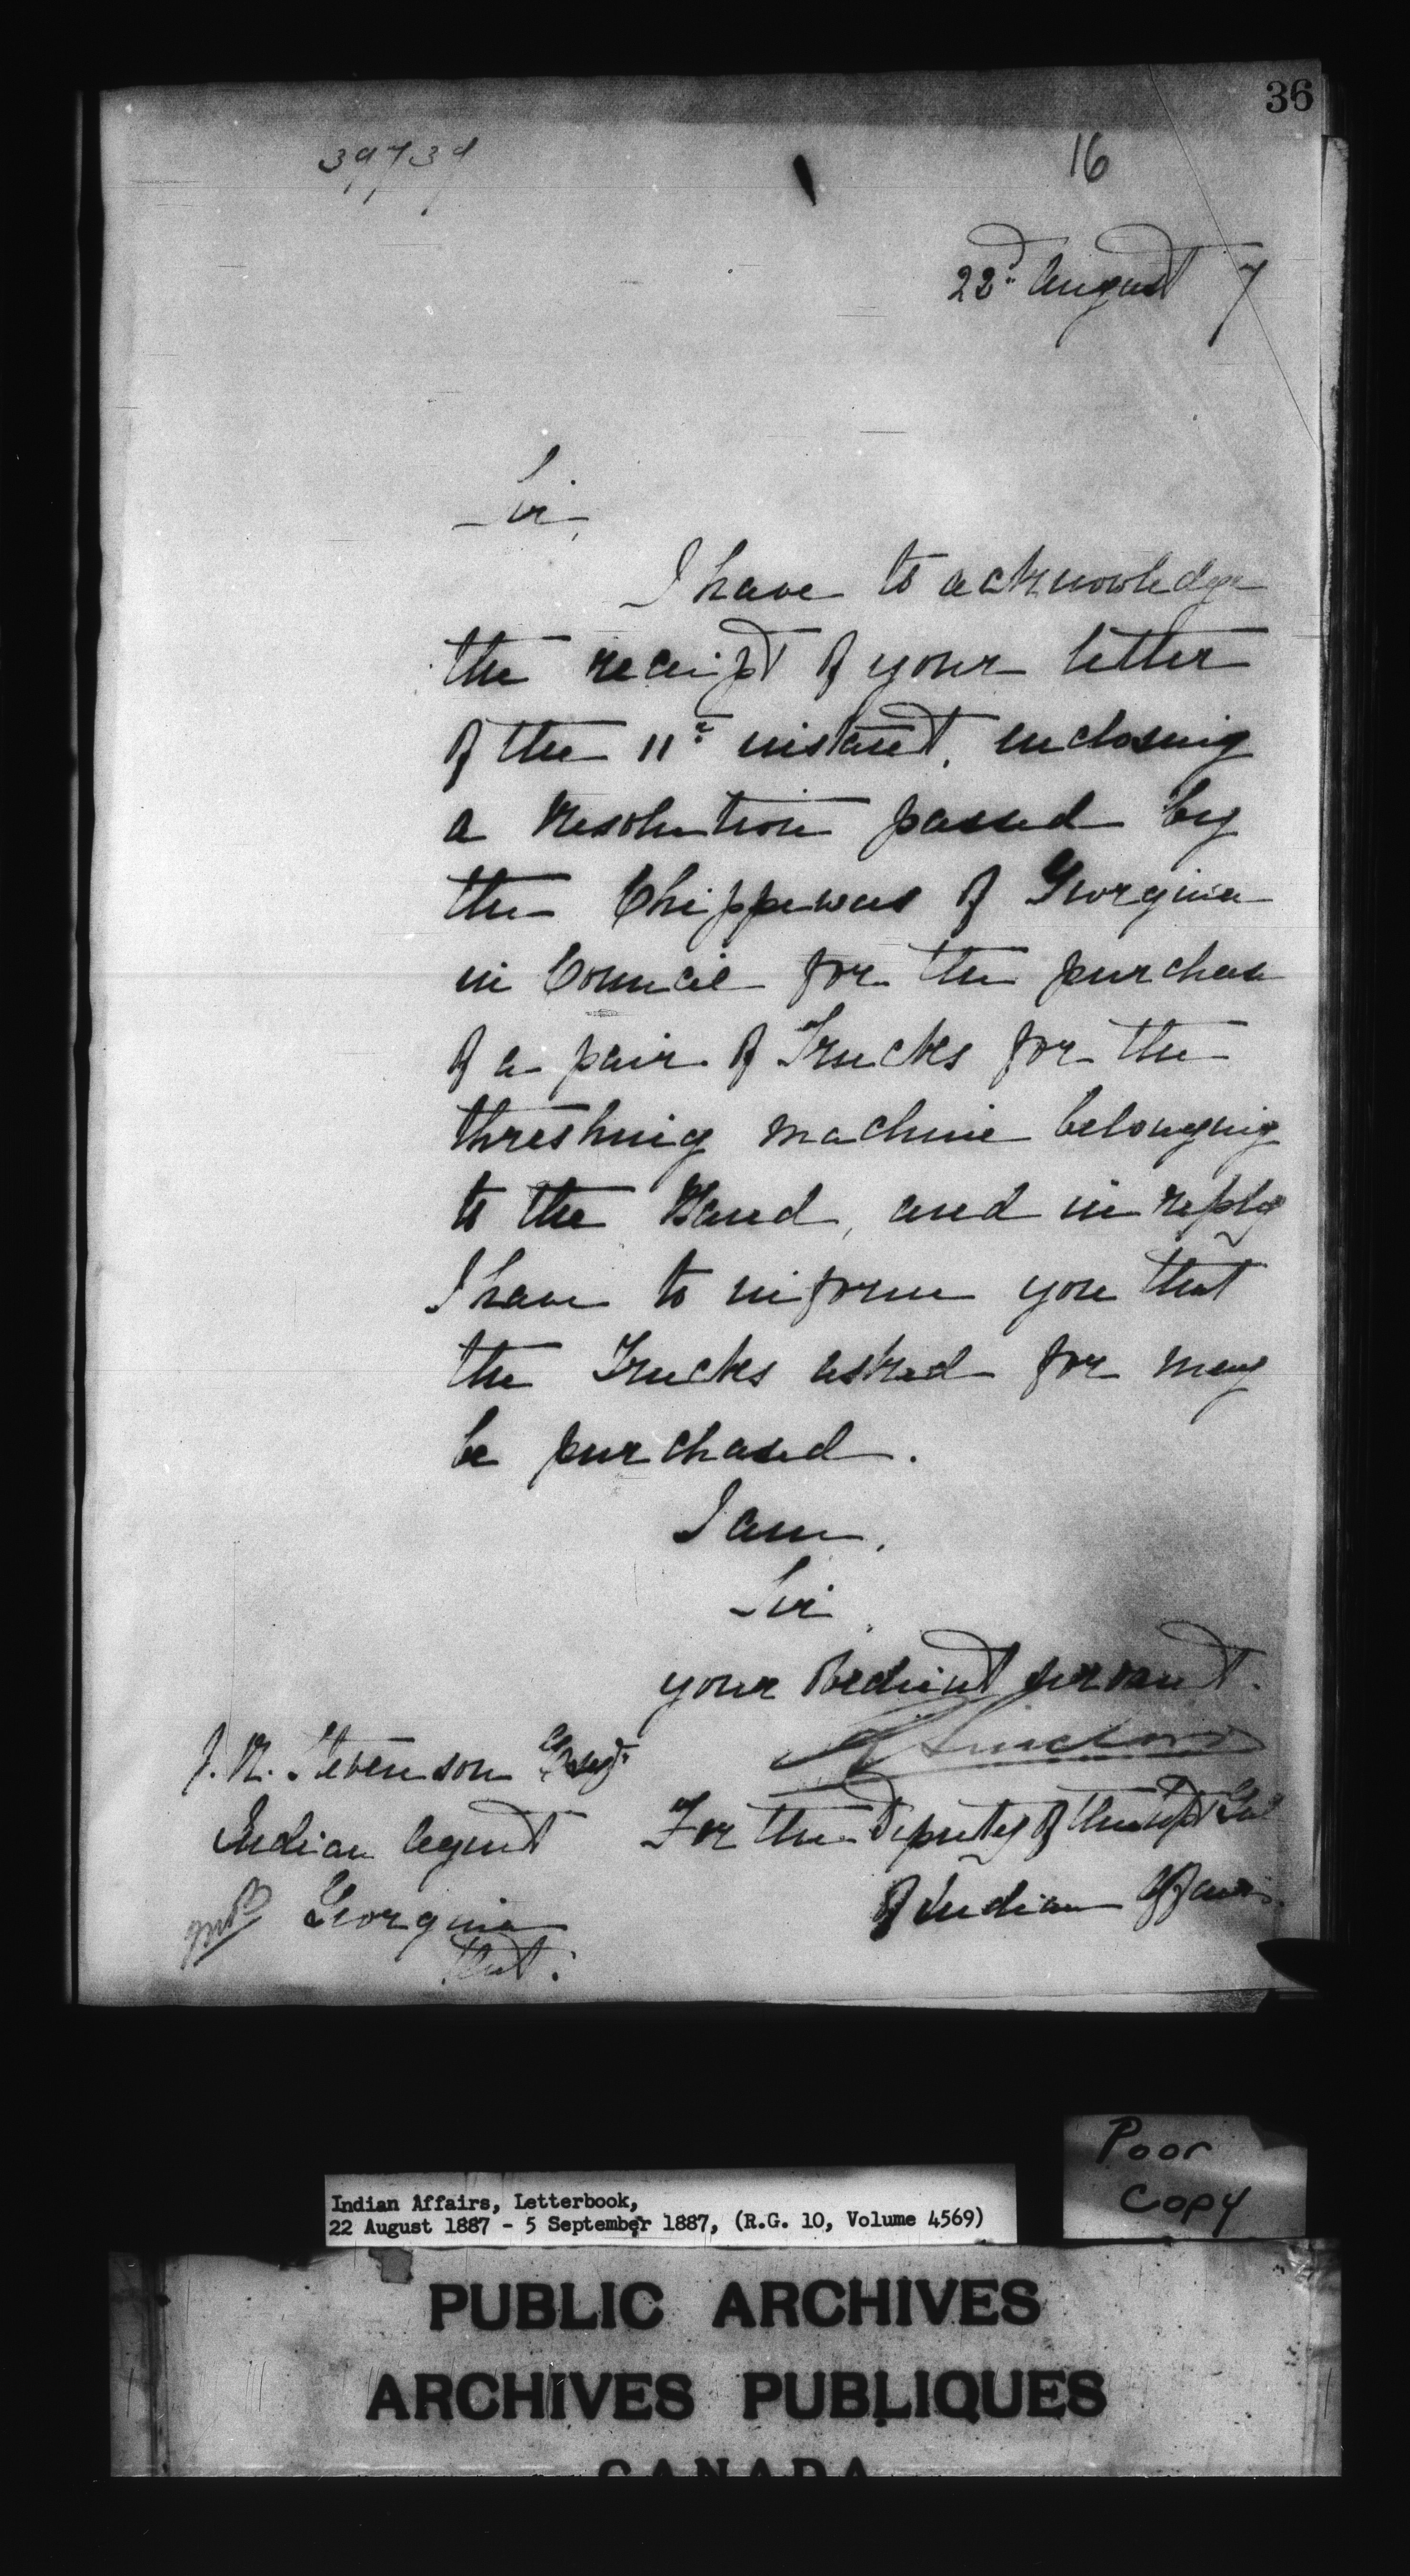 36
39739
16
22d August 7
Sir,
I have to acknowledge
the receipt of your letter
of the 11th instant, enclosing
a Resolution passed by
the Chippewas of Georgina
in Council for the purchase
of a pair of Trucks for the
threshing machine belonging
to the Band, and in reply
I have to inform you that
the Trucks asked for may
be purchased.
I am,
Sir,
your obedient servant.
J. R. Stevenson Esq.
R Sinclair
Indian Agent
For the Deputy of the Supt Genl
of Indian Affairs.
Georgina
Ont.
Poor
Copy
Indian Affairs, Letterbook,
22 August 1887 - 5 September 1887, (R.G. 10, Volume 4569)
PUBLIC ARCHIVES
ARCHIVES PUBLIQUES
CANADA